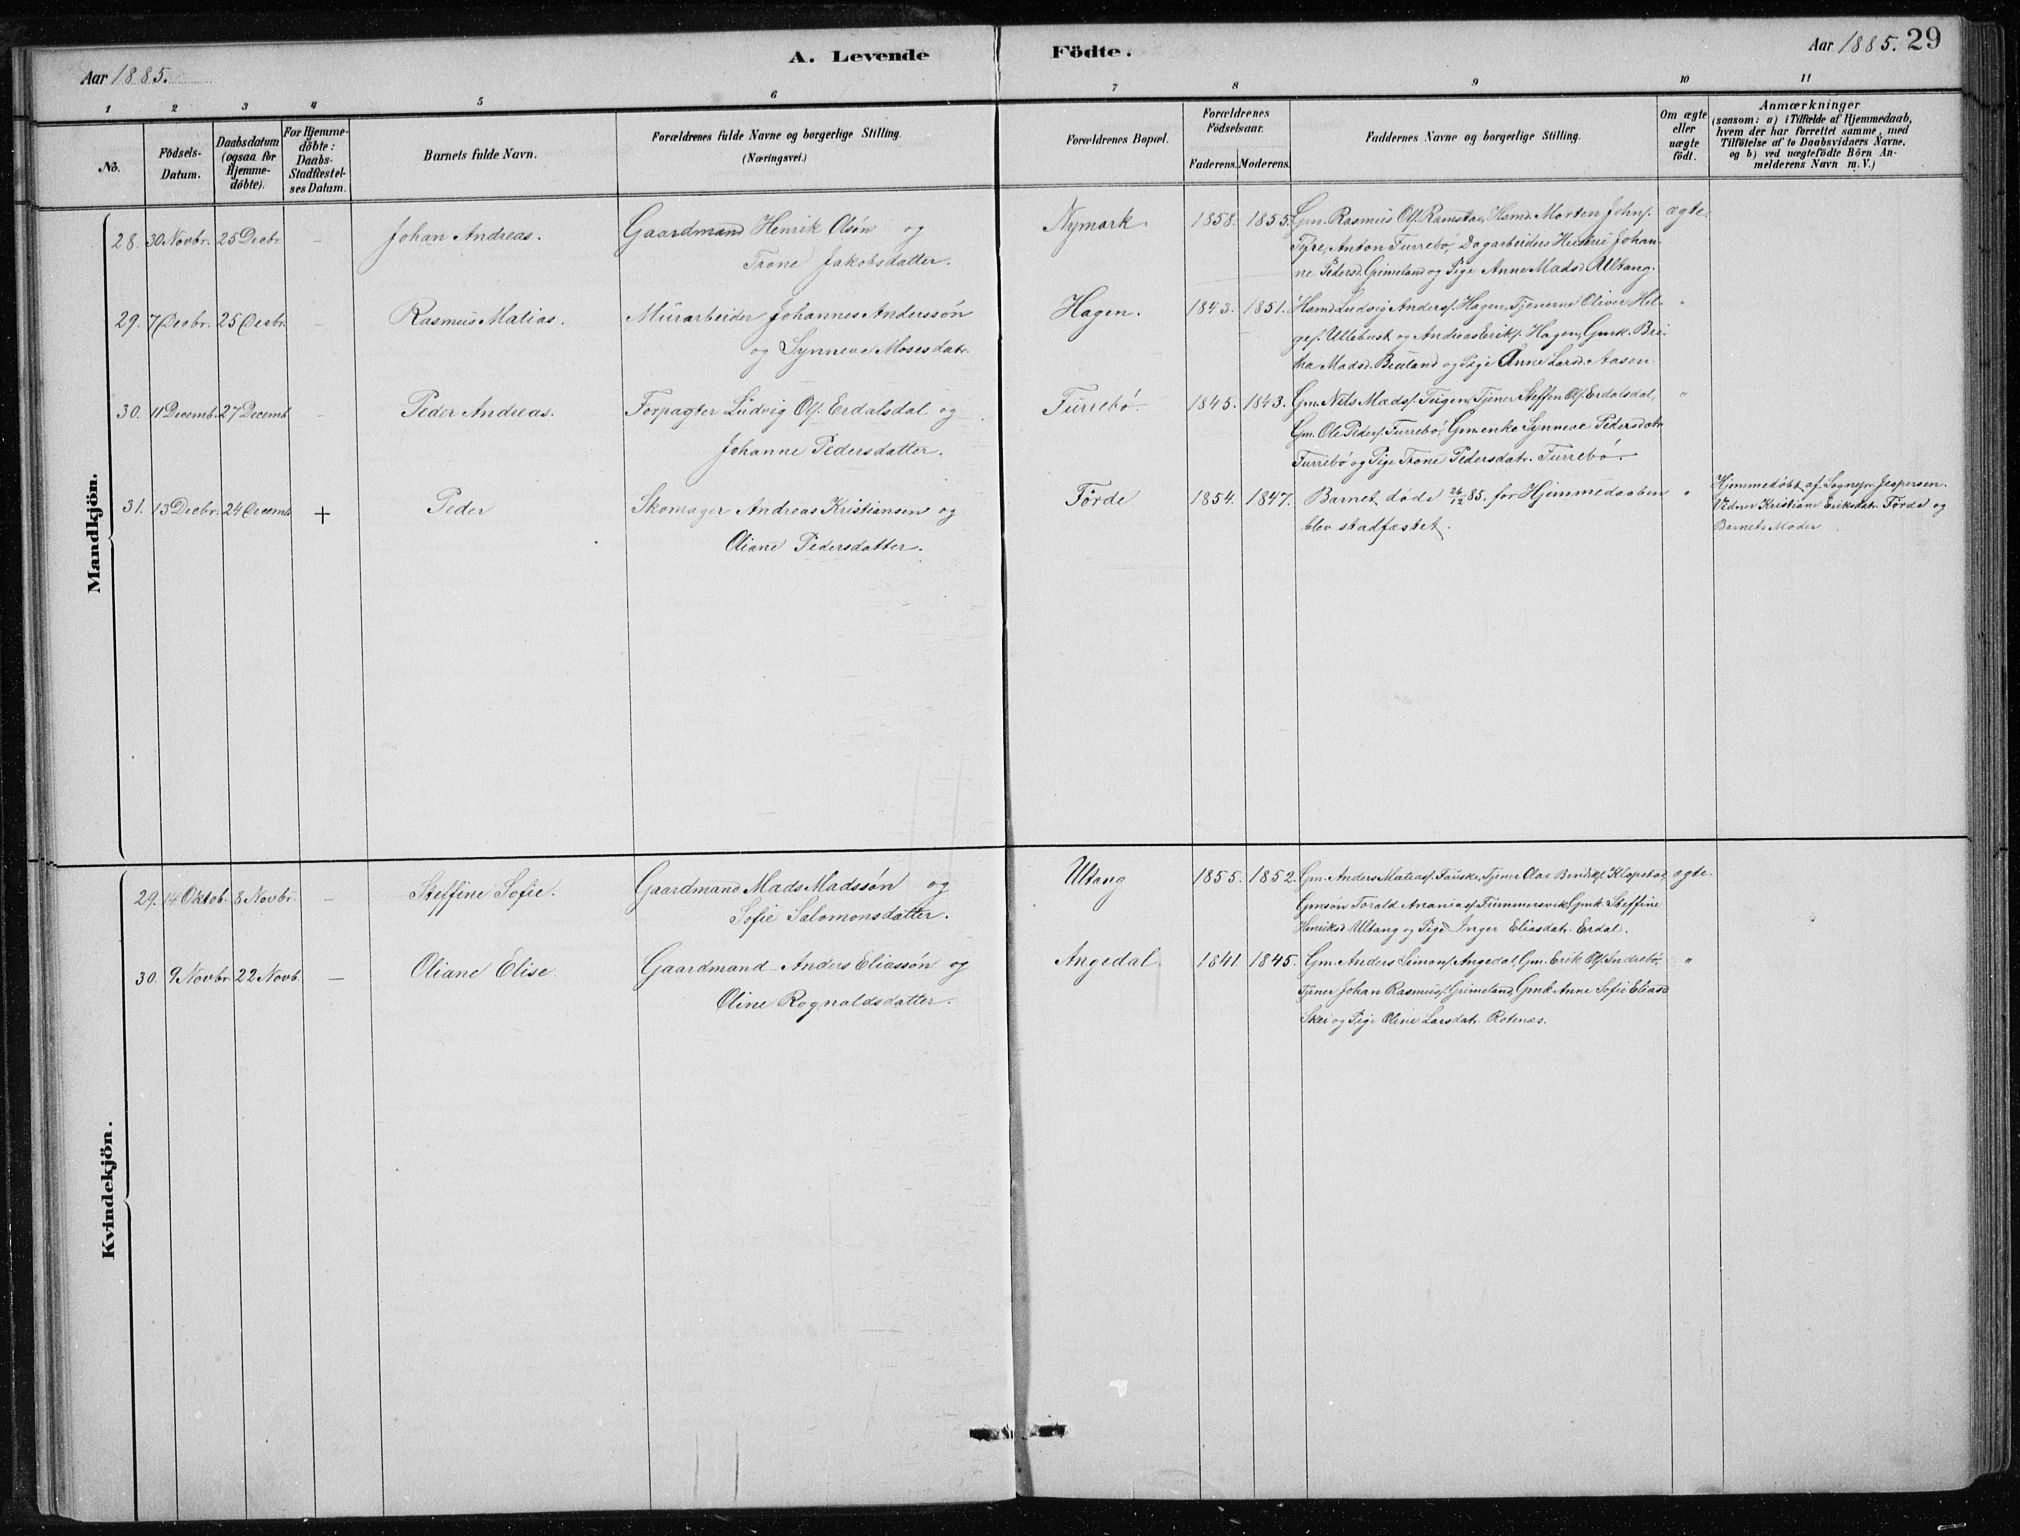 A. Levende Födte.
Aar 1885.
Aar 1885. 29
1 2 3 4 5 6 7 8 9 10 11
No.
Födsels-Datum.
Daabsdatum (ogsaa for Hjemmedöbte).
For Hjemmedöbte: Daabs-Stadfæstelses Datum.
Barnets fulde Navn.
Forældrenes fulde Navne og borgerlige Stilling.
(Næringsvei.)
Forældrenes Bopæl.
Forældrenes Födselsaar.
Faderens. Moderens.
Faddernes Navne og borgerlige Stilling.
Om ægte eller uægte födt.
Anmærkninger
(saasom: a) i Tilfælde af Hjemmedaab, hvem der har forrettet samme, med Tilföielse af to Daabsvidners Navne, og b) ved uægtefödte Börn Anmelderens Navn m. V.)
Mandkjön.
28. 30 Novbr. 25 Decbr. – Johan Andreas. Gaardmand Henrik Olsön og
Trone Jakobsdatter.
Nymark 1858. 1855. Gm. Rasmus Ols. Ramstad, Hsmd. Morten Johns.
Tefre, Anton Furrebö, Dagarbeiders Hustru Johan-
ne Pedersd. Grimeland og Pige Anne Madsd. Ultang.
ægte.
29. 7 Decbr. 25 Decbr. – Rasmus Matias. Murarbeider Johannes Anderssön
og Synneve Mosesdatr.
Hagen. 1843. 1851. Hsmd Ludvig Anders. Hagen, Tjenerne Oliver Hel-
ges. Ullebust og Andreas Eriks. Hagen, Gmk. Bri-
tha Madsd. Bruland og Pige Anne Larsd. Aasen.
"
30. 11 Decemb. 27 Decemb. – Peder Andreas. Forpagter Ludvig Ols. Erdalsdal og
Johanne Pedersdatter.
Furrebö 1845. 1843. Gm. Nils Mads. Teigen, Tjener Steffen Ols. Erdalsdal,
Gm. Ole Peders. Furrebö, Gm.enke Synneve Pedersdatr.
Furrebö og Pige Trone Pedersdatr. Furrebö.
"
31. 13 Decbr. 24 Decemb. + Peder Skomager Andreas Kristiansen og
Oliane Pedersdatter.
Förde 1854. 1847. Barnet döde 26/12 85, for Hjemmedaaben
blev stadfæstet.
"
Hjemmedöbt af Sognepr. Jespersen.
Vidner Kristiane Eriksdatr. Förde og
Barnets Moder.
Kvindekjön.
29. 14 Oktob. 8 Novbr. – Steffine Sofie. Gaardmand Mads Madssön og
Sofie Salomonsdatter.
Ultang 1855. 1852. Gm. Anders Matias. Fauske, Tjener Olai Bendiks. Klopstad,
Gmsön Torald Ananias. Fimmersvik, Gmk Steffine
Henriksd. Ultang og Pige Inger Eliasdatr. Erdal.
ægte.
30. 9 Novbr. 22 Novb. – Oliane Elise. Gaardmand Anders Eliassön og
Oline Rognaldsdatter.
Angedal. 1841 1845. Gm. Anders Simons. Angedal, Gm. Erik Ols. Indrebö,
Tjener Johan Rasmus. Grimeland, Gmk Anne Sofie Eliasd
Skei og Pige Oline Larsdatr. Rotenæs.
"